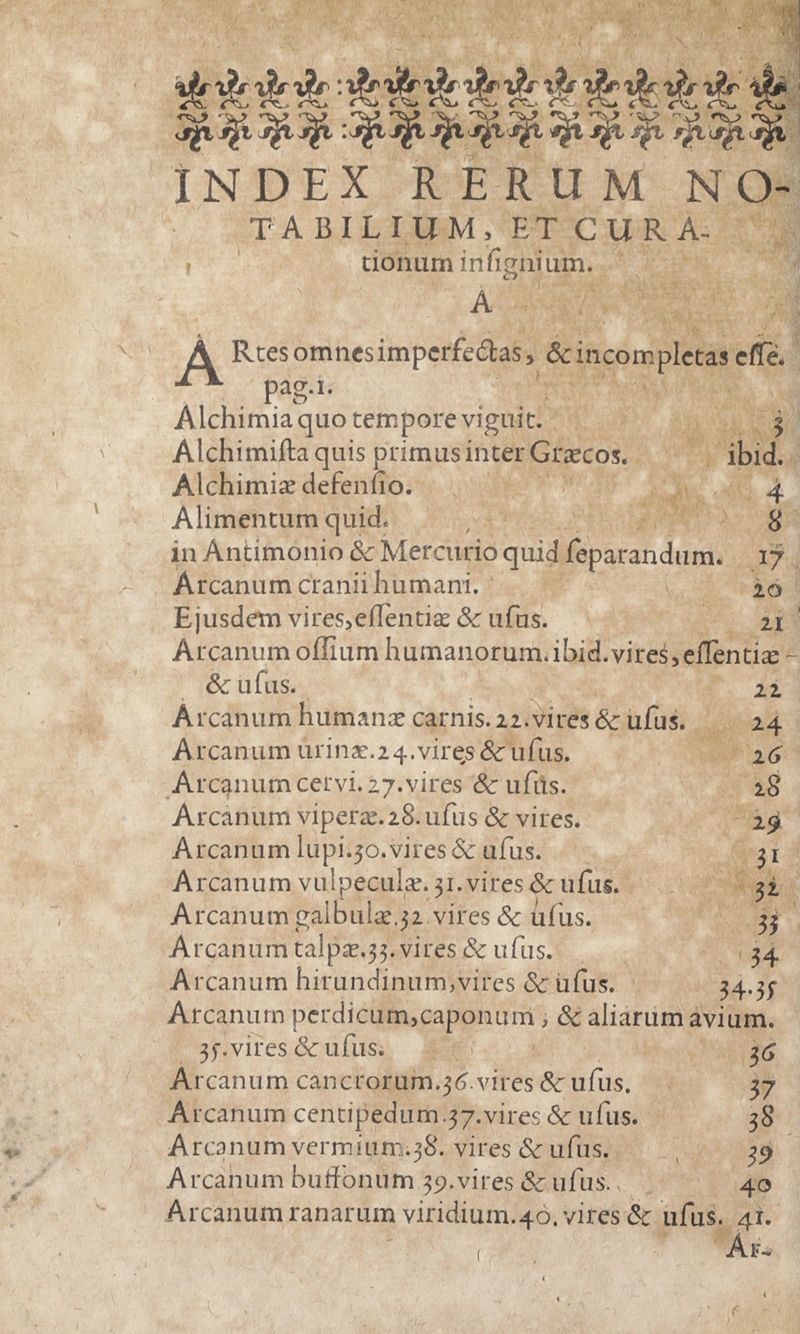 INDEX RERUM NO-
TABILIUM, ET CURA-
tionum inſignium.
A
ARtes omnes imperfectas, & incompletas eſſe.
pag.1.
Alchimia quo tempore viguit. 3
Alchimiſta quis primus inter Græcos. ibid.
Alchimiæ defenſio. 4
Alimentum quid. 8
in Antimonio & Mercurio quid ſeparandum. 17
Arcanum cranii humani. 20
Ejusdem vires, eſſentiæ & uſus. 21
Arcanum oſſium humanorum. ibid. vires, eſſentiæ
& uſus. 22
Arcanum humanæ carnis. 22. vires & uſus. 24
Arcanum urinæ. 24. vires & uſus. 26
Arcanum cervi. 27. vires & uſus. 28
Arcanum viperæ. 28. uſus & vires. 29
Arcanum lupi. 30. vires & uſus. 31
Arcanum vulpeculæ. 31. vires & uſus. 32
Arcanum galbulæ. 32. vires & uſus. 33
Arcanum talpæ. 33. vires & uſus. 34
Arcanum hirundinum, vires & uſus. 34.35
Arcanum perdicum, caponum, & aliarum avium.
35. vires & uſus. 36
Arcanum cancrorum. 36. vires & uſus. 37
Arcanum centipedum. 37. vires & uſus. 38
Arcanum vermium. 38. vires & uſus. 39
Arcanum buffonum 39. vires & uſus. 40
Arcanum ranarum viridium. 40. vires & uſus. 41.
Ar-